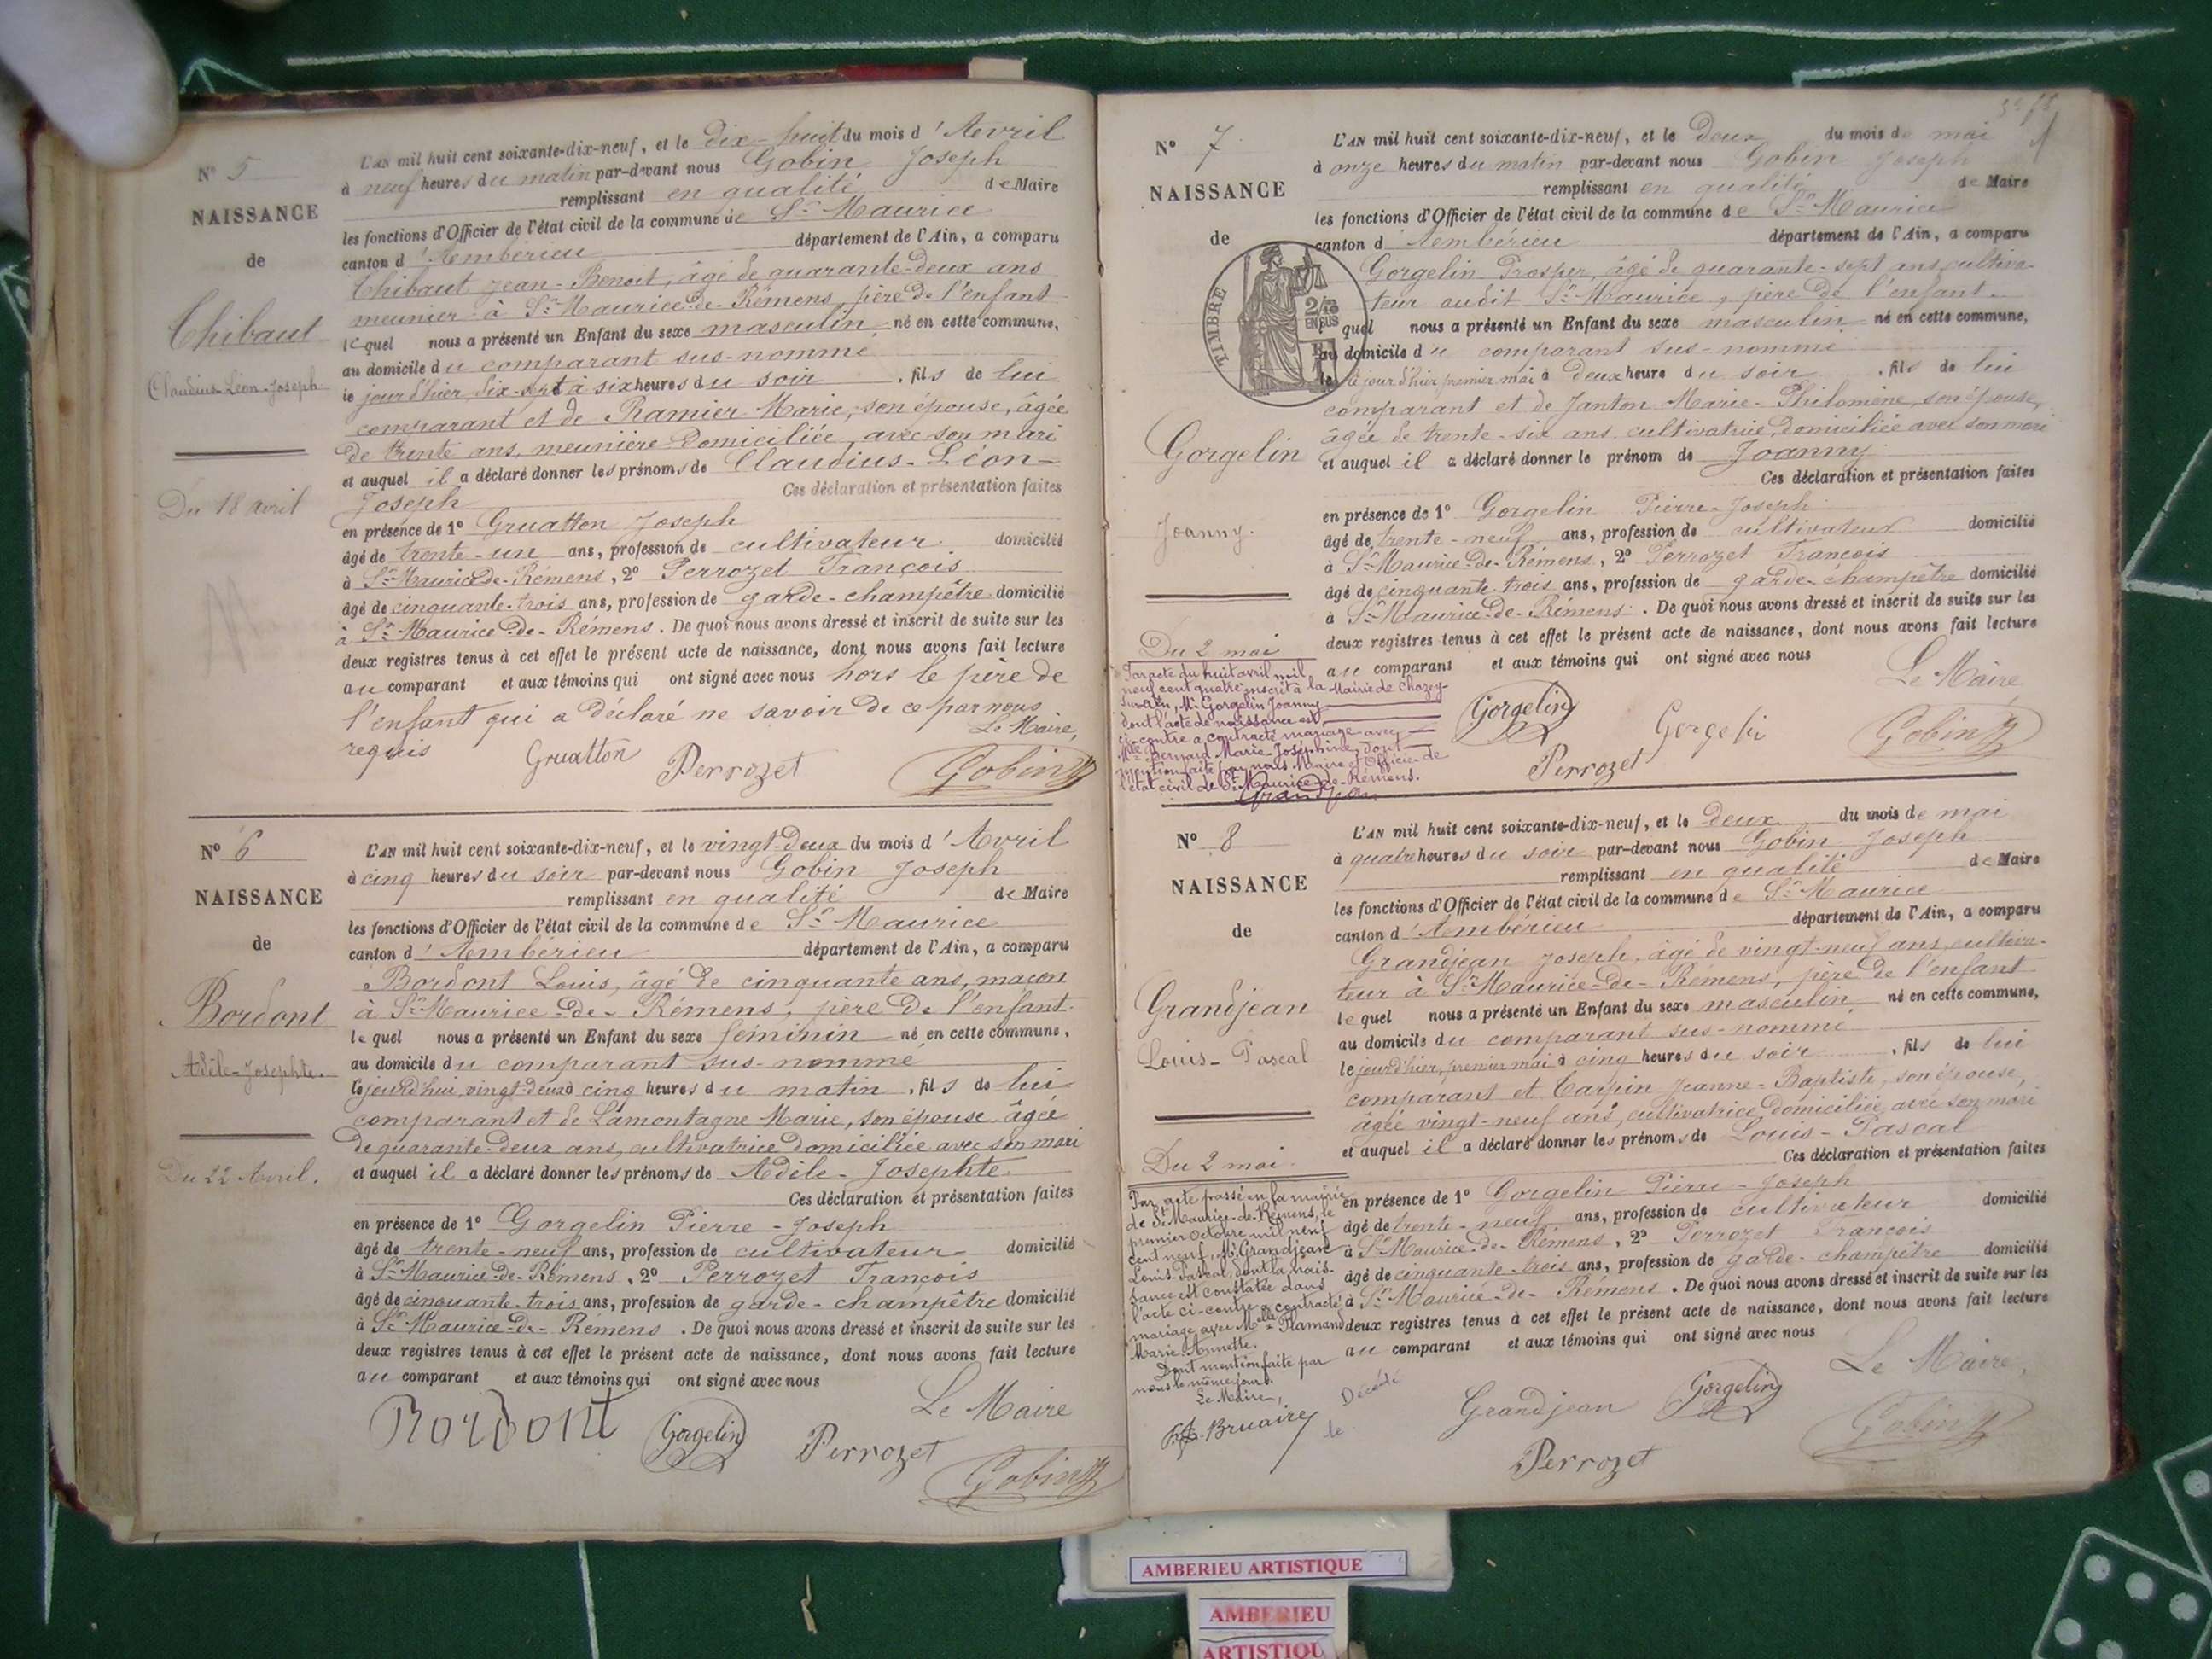 N° 5
NAISSANCE
de
Thibaut
Claudius-Léon-Joseph
Du 18 avril
L'AN mil huit cent soixante-dix-neuf, et le dix-huit du mois d'Avril
à neuf heures du matin par-devant nous Gobin Joseph
remplissant en qualité de Maire
les fonctions d'Officier de l'état civil de la commune de St Maurice
canton d'Ambérieu département de l'Ain, a comparu
Thibaut Jean-Benoit, âgé de quarante-deux ans
meunier à St Maurice-de-Rémens, père de l'enfant
lequel nous a présenté un Enfant du sexe masculin né en cette commune,
au domicile du comparant sus-nommé
le jour d'hier dix-sept à six heures du soir, fils de lui
comparant et de Ramier Marie, son épouse, âgée
de trente ans, meunière domiciliée avec son mari
et auquel il a déclaré donner les prénoms de Claudius-Léon-
Joseph Ces déclaration et présentation faites
en présence de 1° Gruatton Joseph
âgé de trente-un ans, profession de cultivateur domicilié
à St Maurice-de-Rémens, 2° Perrozet François
âgé de cinquante-trois ans, profession de garde-champêtre domicilié
à St Maurice-de-Rémens. De quoi nous avons dressé et inscrit de suite sur les
deux registres tenus à cet effet le présent acte de naissance, dont nous avons fait lecture
au comparant et aux témoins qui ont signé avec nous hors le père de
l'enfant qui a déclaré ne savoir de ce par nous
requis Le Maire,
Gruatton Perrozet Gobin
N° 6
NAISSANCE
de
Bordont
Adèle-Josephte.
Du 22 Avril.
L'AN mil huit cent soixante-dix-neuf, et le vingt-deux du mois d'Avril
à cinq heures du soir par-devant nous Gobin Joseph
remplissant en qualité de Maire
les fonctions d'Officier de l'état civil de la commune de St Maurice
canton d'Ambérieu département de l'Ain, a comparu
Bordont Louis, âgé de cinquante ans, maçon
à St Maurice-de-Rémens, père de l'enfant
lequel nous a présenté un Enfant du sexe féminin né en cette commune,
au domicile du comparant sus-nommé
le jourd'hui, vingt-deux à cinq heures du matin, fils de lui
comparant et de Lamontagne Marie, son épouse âgée
de quarante-deux ans, cultivatrice domiciliée avec son mari
et auquel il a déclaré donner les prénoms de Adèle-Josephte
Ces déclaration et présentation faites
en présence de 1° Gorgelin Pierre-Joseph
âgé de trente-neuf ans, profession de cultivateur domicilié
à St Maurice-de-Rémens, 2° Perrozet François
âgé de cinquante-trois ans, profession de garde-champêtre domicilié
à St Maurice-de-Remens. De quoi nous avons dressé et inscrit de suite sur les
deux registres tenus à cet effet le présent acte de naissance, dont nous avons fait lecture
au comparant et aux témoins qui ont signé avec nous
Le Maire
Bordont Gorgelin Perrozet Gobin
N° 7
NAISSANCE
de
TIMBRE
2/10
EN SUS
Gorgelin
Joanny.
Du 2 mai
Par acte du huit avril mil
neuf cent quatre inscrit à la Mairie de Chazey-
sur-Ain, Mr Gorgelin Joanny
dont l'acte de naissance est
ci-contre a contracté mariage avec
Mlle Bernard Marie-Joséphine, dont
mention faite par nous Maire et Officier de
l'état civil de St Maurice-de-Rémens.
Grandjean
L'AN mil huit cent soixante-dix-neuf, et le deux du mois de mai
à onze heures du matin par-devant nous Gobin Joseph
remplissant en qualité de Maire
les fonctions d'Officier de l'état civil de la commune de St Maurice
canton d'Ambérieu département de l'Ain, a comparu
Gorgelin Prosper, âgé de quarante-sept ans cultiva-
teur audit St Maurice, père de l'enfant
quel nous a présenté un Enfant du sexe masculin né en cette commune,
au domicile du comparant sus-nommé
le jour d'hier premier mai à deux heure du soir, fils de lui
comparant et de Janton Marie-Philomène, son épouse,
âgée de trente-six ans, cultivatrice, domiciliée avec son mari
et auquel il a déclaré donner le prénom de Joanny
Ces déclaration et présentation faites
en présence de 1° Gorgelin Pierre-Joseph
âgé de trente-neuf ans, profession de cultivateur domicilié
à St Maurice-de-Rémens, 2° Perrozet François
âgé de cinquante-trois ans, profession de garde-champêtre domicilié
à St Maurice-de-Rémens. De quoi nous avons dressé et inscrit de suite sur les
deux registres tenus à cet effet le présent acte de naissance, dont nous avons fait lecture
au comparant et aux témoins qui ont signé avec nous
Le Maire
Gorgelin Gorgelin Gobin
Perrozet
N° 8
NAISSANCE
de
Grandjean
Louis-Pascal
Du 2 mai.
Par acte passé en la mairie
de St Maurice-de-Rémens, le
premier Octobre mil neuf
cent neuf, Mr Grandjean
Louis-Pascal, dont la nais-
sance est constatée dans
l'acte ci-contre a contracté
mariage avec Melle Flamand
Marie-Annette.
Dont mention faite par
nous le même jour.
Le Maire,
Bruaire
Décédé
le
L'AN mil huit cent soixante-dix-neuf, et le deux du mois de mai
à quatre heures du soir par-devant nous Gobin Joseph
remplissant en qualité de Maire
les fonctions d'Officier de l'état civil de la commune de St Maurice
canton d'Ambérieu département de l'Ain, a comparu
Grandjean Joseph, âgé de vingt-neuf ans cultiva-
teur à St Maurice-de-Rémens, père de l'enfant
lequel nous a présenté un Enfant du sexe masculin né en cette commune,
au domicile du comparant sus-nommé
le jour d'hier, premier mai à cinq heures du soir, fils de lui
comparant et Carpin Jeanne-Baptiste, son épouse,
âgée vingt-neuf ans, cultivatrice domiciliée avec son mari
et auquel il a déclaré donner les prénoms de Louis-Pascal
Ces déclaration et présentation faites
en présence de 1° Gorgelin Pierre-Joseph
âgé de trente-neuf ans, profession de cultivateur domicilié
à St Maurice-de-Rémens, 2° Perrozet François
âgé de cinquante-trois ans, profession de garde-champêtre domicilié
à St Maurice-de-Rémens. De quoi nous avons dressé et inscrit de suite sur les
deux registres tenus à cet effet le présent acte de naissance, dont nous avons fait lecture
au comparant et aux témoins qui ont signé avec nous
Le Maire,
Grandjean Gorgelin Gobin
Perrozet
AMBERIEU ARTISTIQUE
AMBERIEU
ARTISTIQU